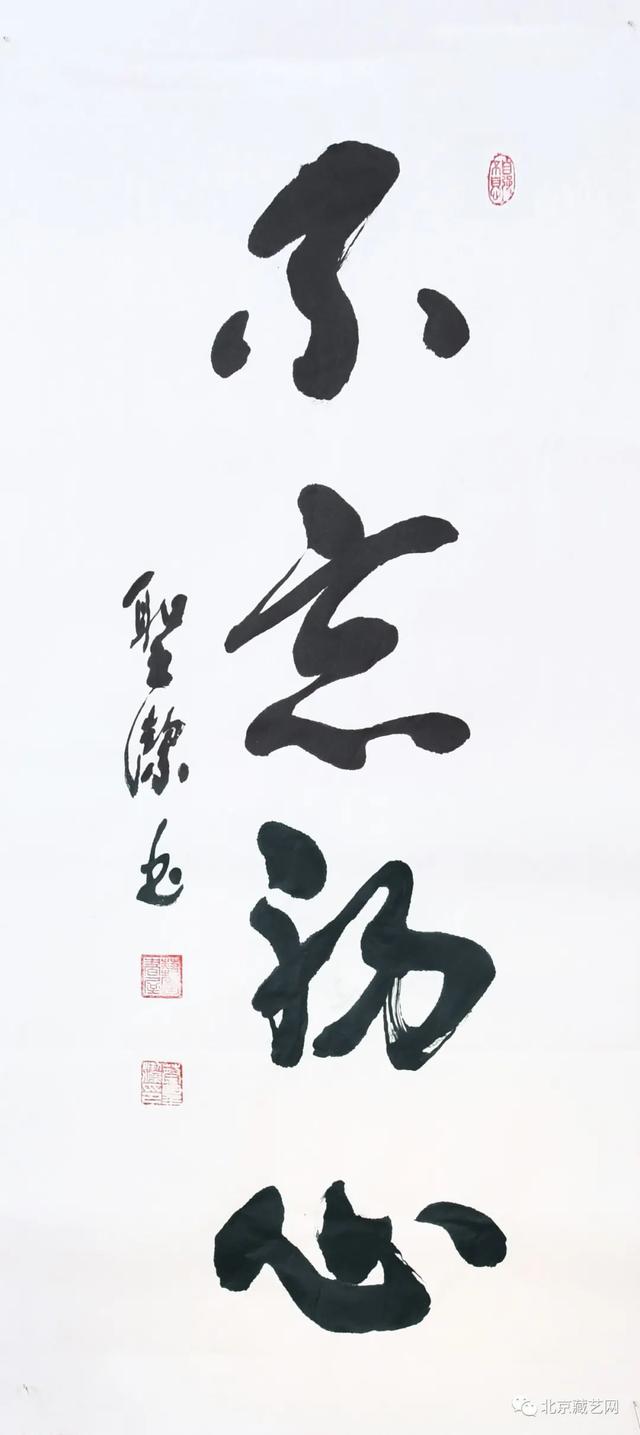 不忘初心
聖潔书
北京藏艺网